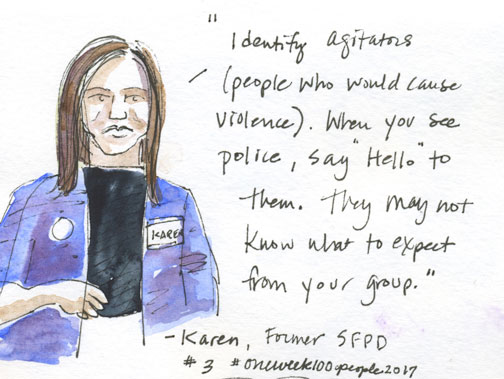 "
Identify agitators
(people who would cause
violence). When you see
police, say "Hello" to
them. They may not
know what to expect
from your group."
KAREN
-Karen, Former SFPD
#3 #oneweek100people2017